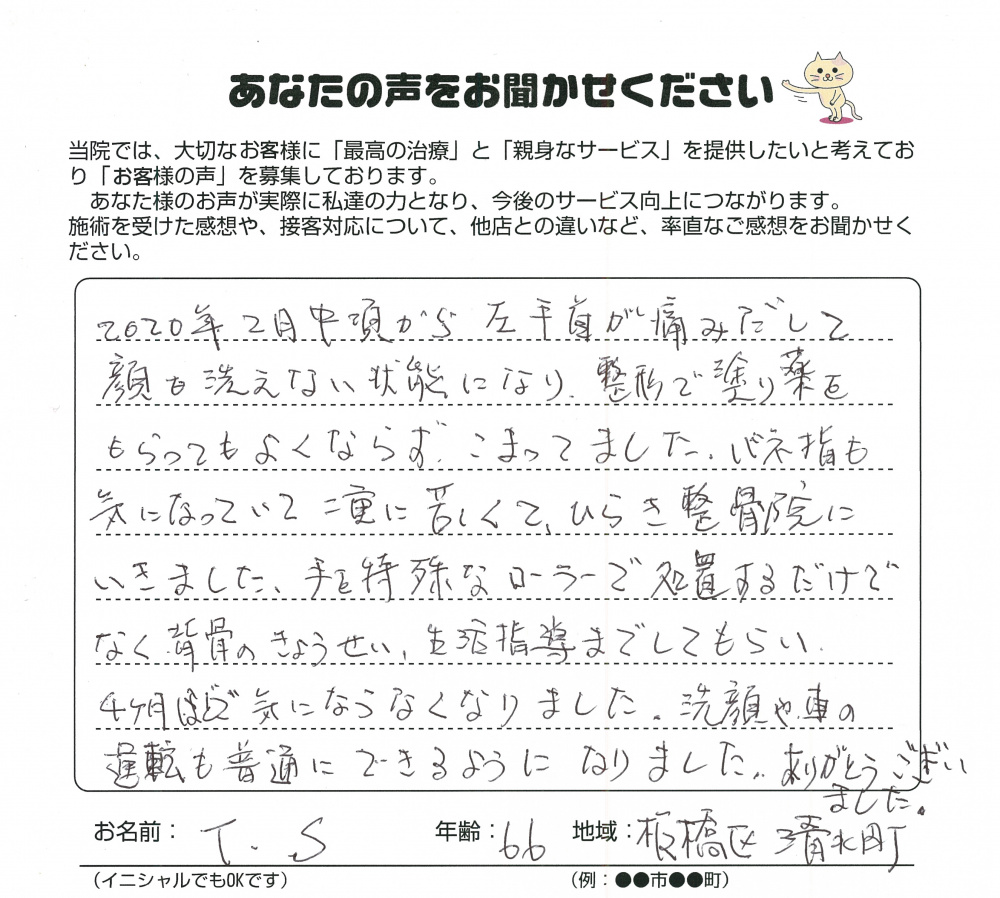 あなたの声をお聞かせください
当院では、大切なお客様に「最高の治療」と「親身なサービス」を提供したいと考えてお
り「お客様の声」を募集しております。
あなた様のお声が実際に私達の力となり、今後のサービス向上につながります。
施術を受けた感想や、接客対応について、他店との違いなど、率直なご感想をお聞かせく
ださい。
2020年2月中頃から左手首が痛みだして
顔も洗えない状態になり、整形で塗り薬を
もらってもよくならず、こまってました。バネ指も
気になっていて二重に苦しくて、ひらき整骨院に
いきました、手を特殊なローラーで処置するだけで
なく背骨のきょうせい、生活指導までしてもらい、
4ヶ月ほどで気にならなくなりました。洗顔や車の
運転も普通にできるようになりました。ありがとうござい
ました。
お名前： T.S 年齢：66 地域：板橋区清水町
（イニシャルでもOKです） （例：●●市●●町）